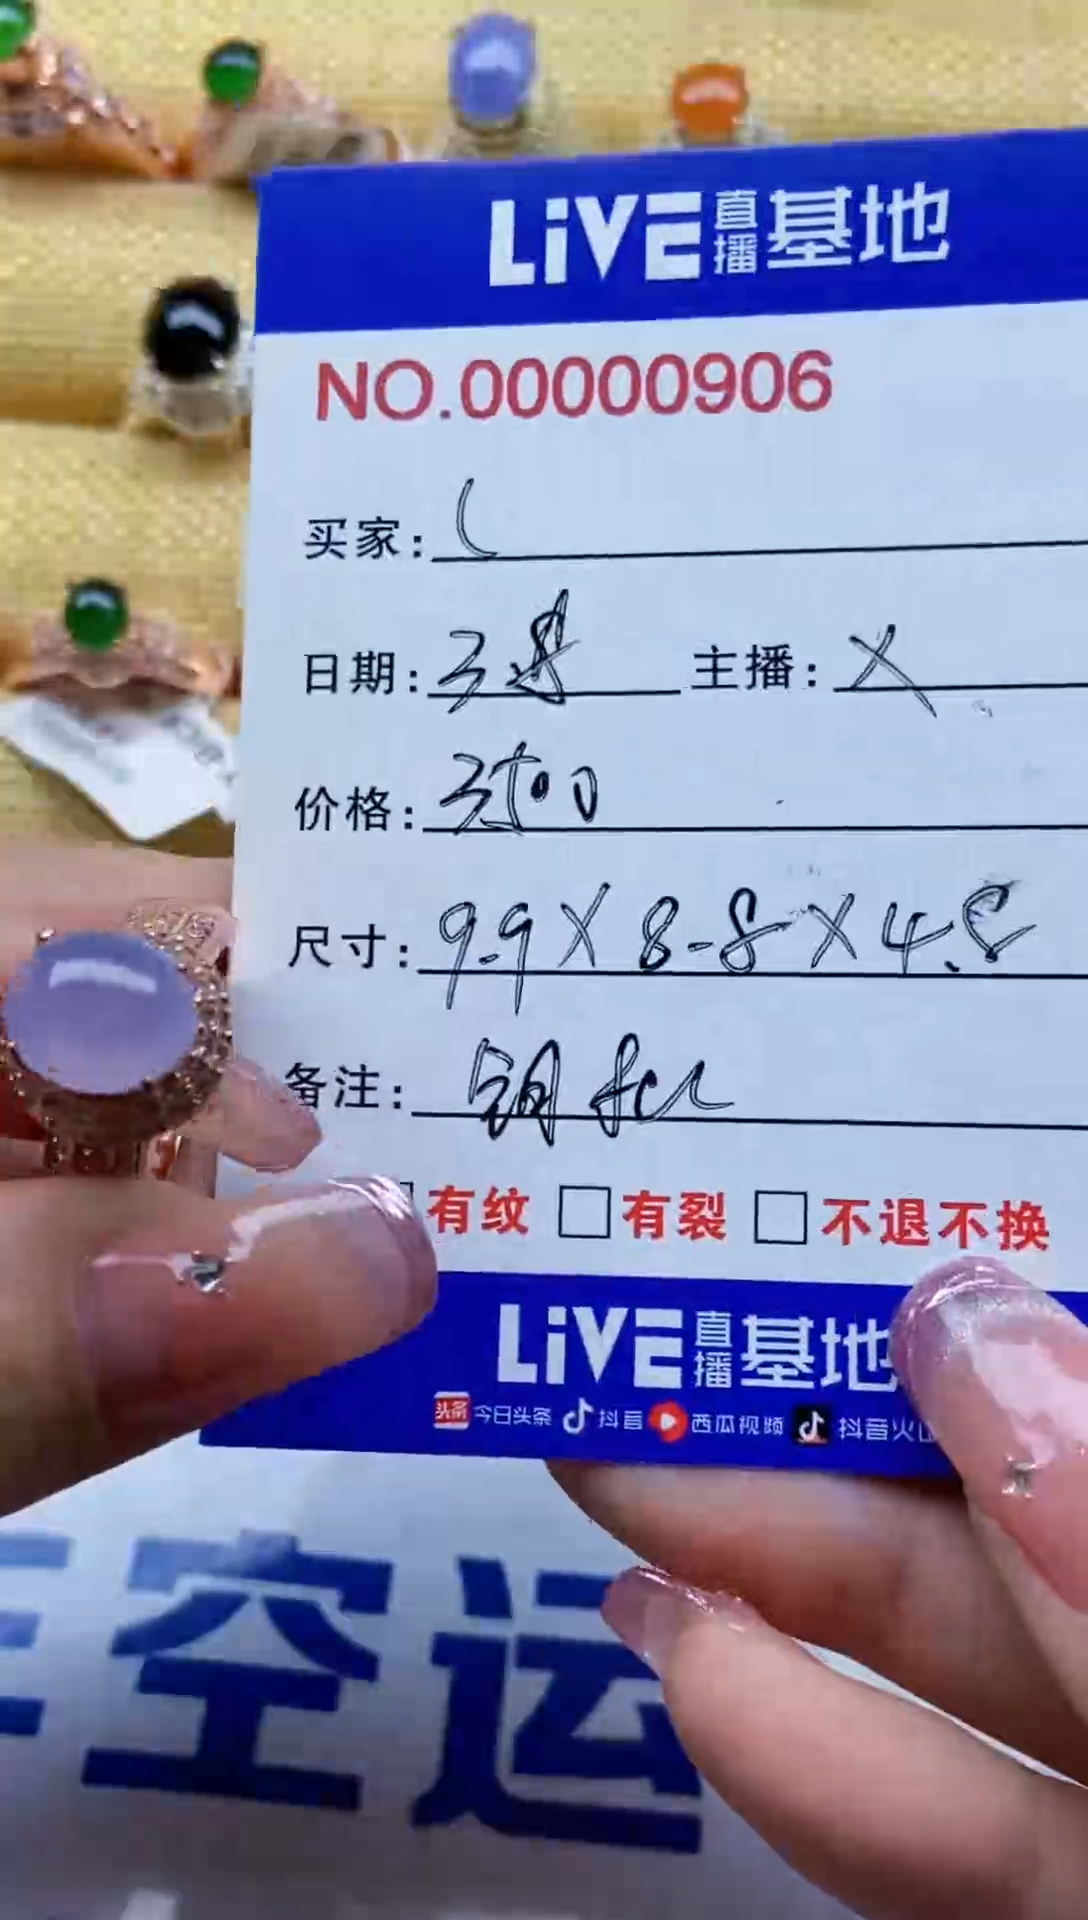 LiVE直播基地
NO.00000906
买家:
日期:3.8 主播:X
价格:3500
尺寸:9.9X8.8X4.8
备注:
有纹 □有裂 □不退不换
LiVE直播基地
头条 今日头条 抖音 西瓜视频 抖音火山
空运